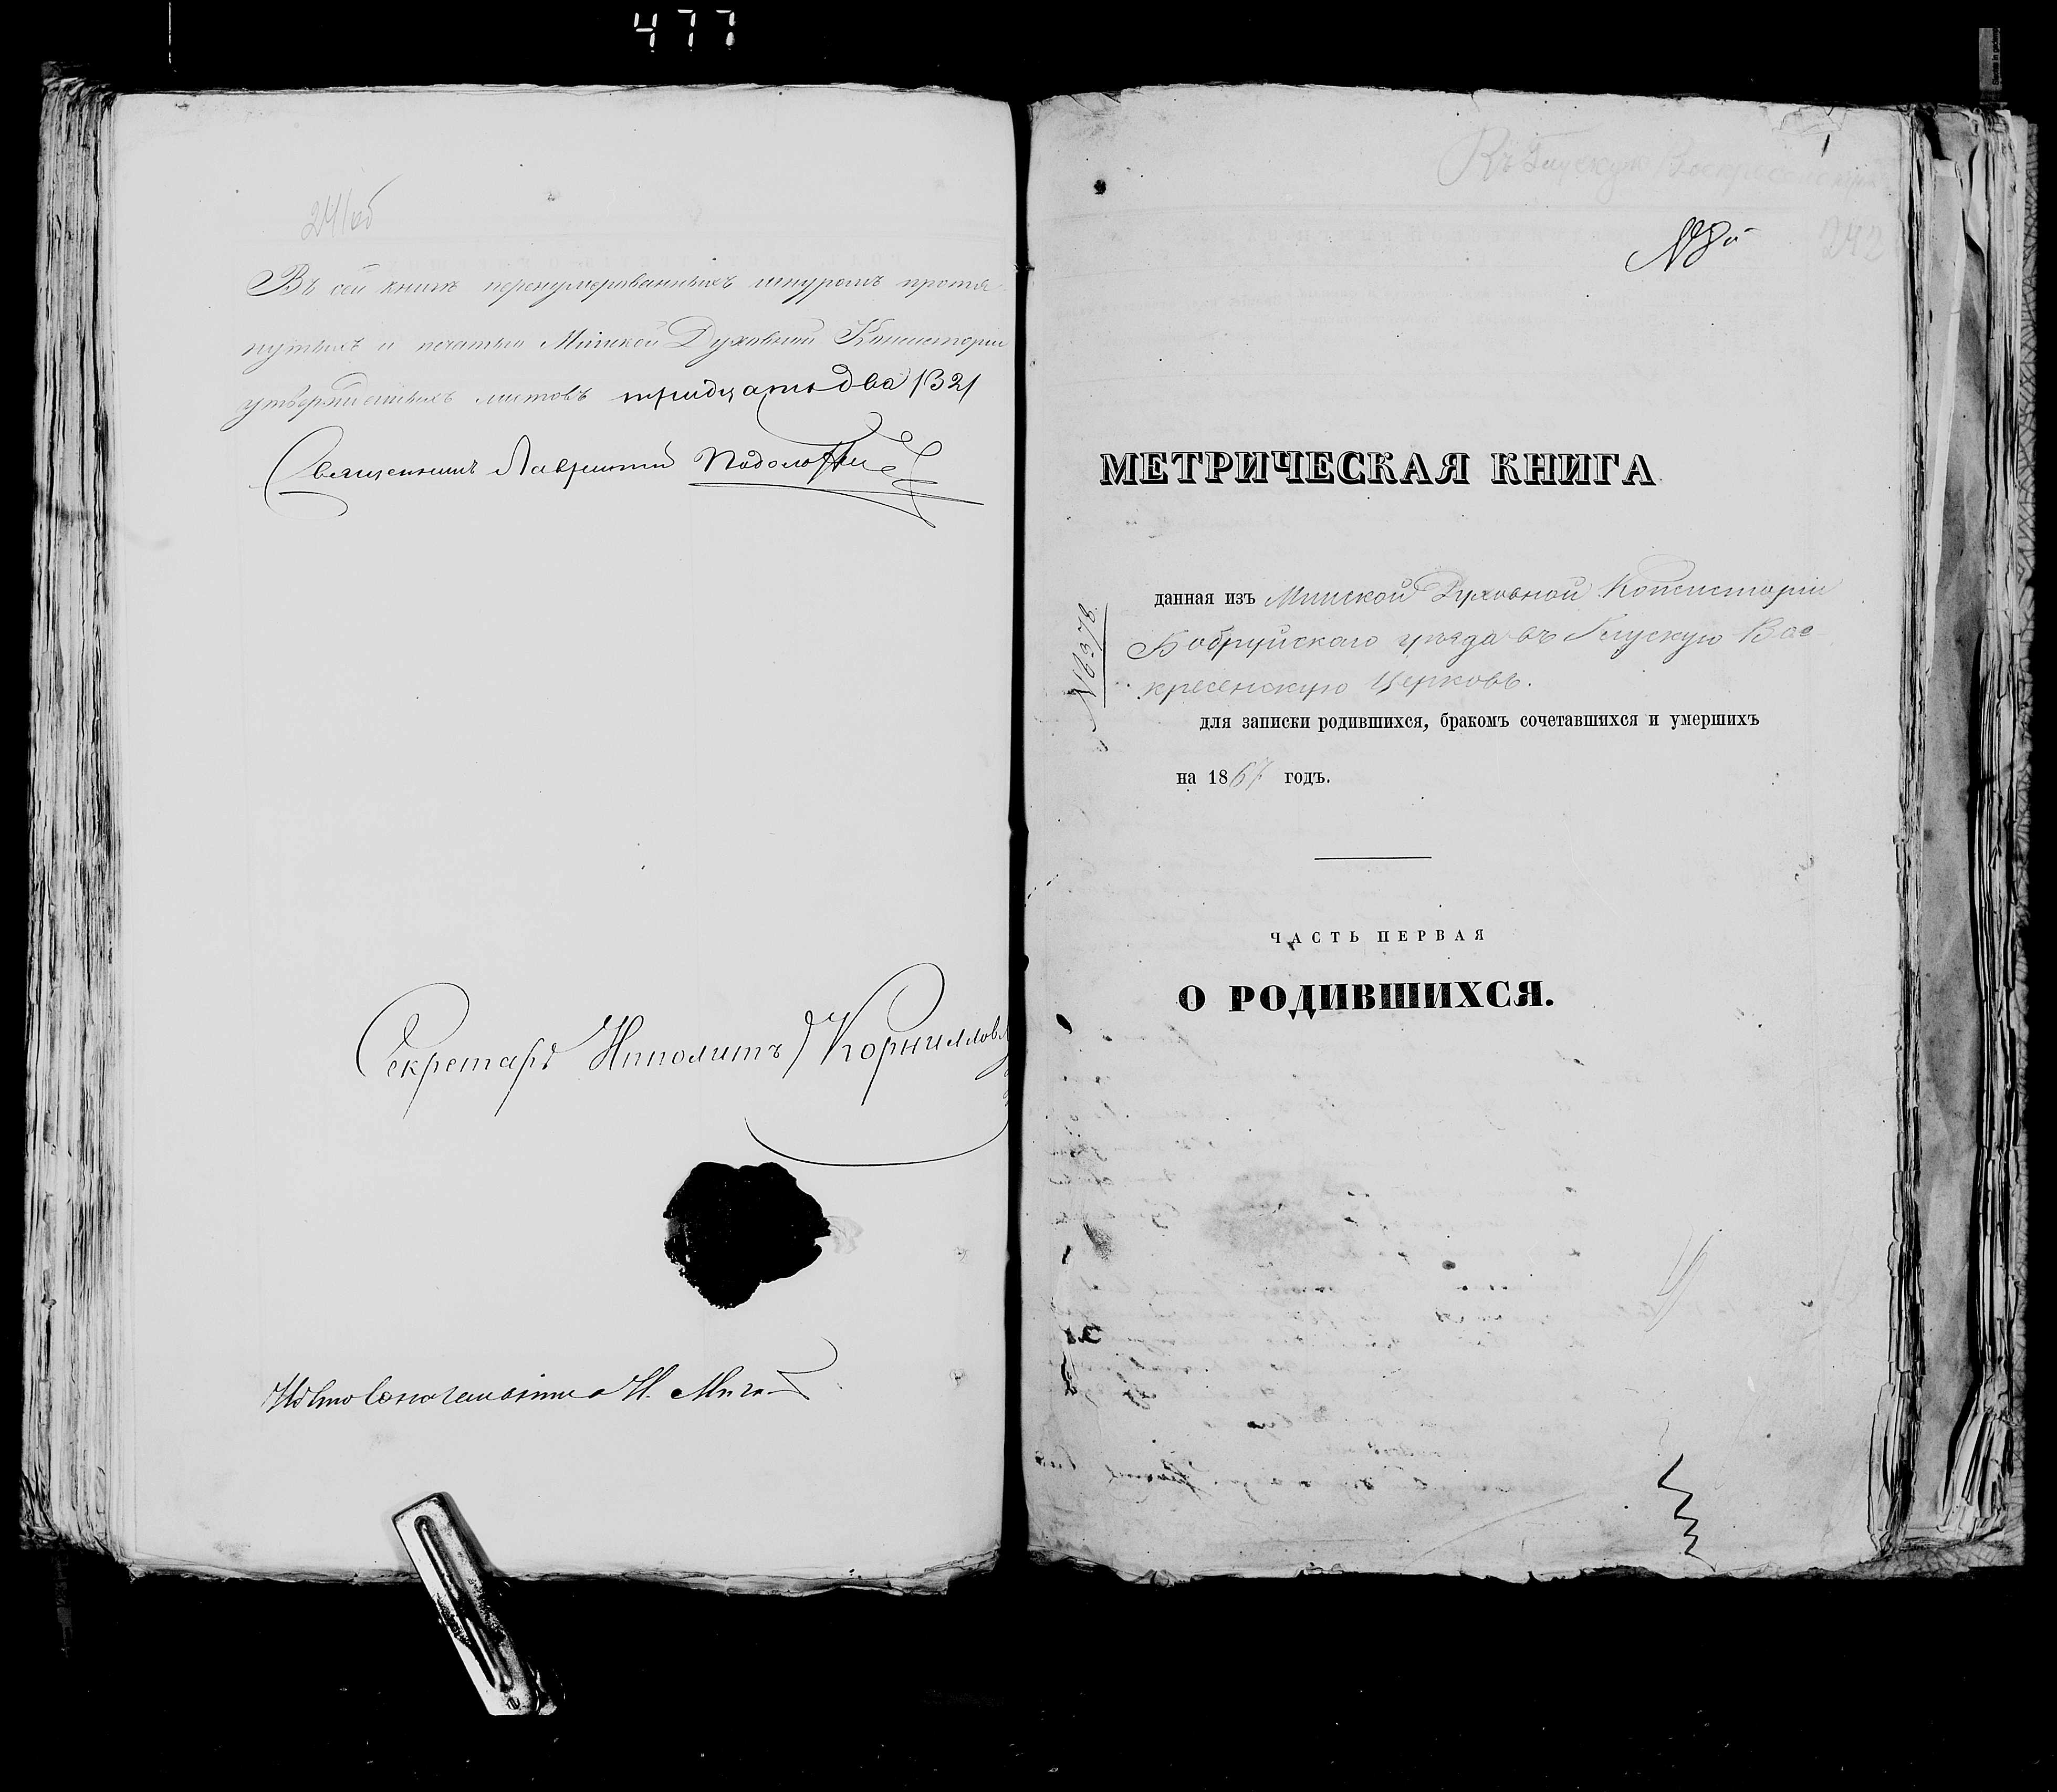 477
241об
Въ сей книгѣ перенумерованныхъ шнуромъ протя-
нутыхъ и печатью Минской Духовной Консисторіи
утвержденныхъ листовъ тридцать два /32/
Священникъ Лаврентій
Секретарь Ипполитъ Корниллов
Къ Глускую Воскресенскую
1
№ 8й
242
МЕТРИЧЕСКАЯ КНИГА
данная изъ Минской Духовной Консисторіи
Бобруйскаго уѣзда въ Глускую Вос-
кресенскую Церковь.
для записки родившихся, бракомъ сочетавшихся и умершихъ
на 1867 годъ.
ЧАСТЬ ПЕРВАЯ
О РОДИВШИХСЯ.